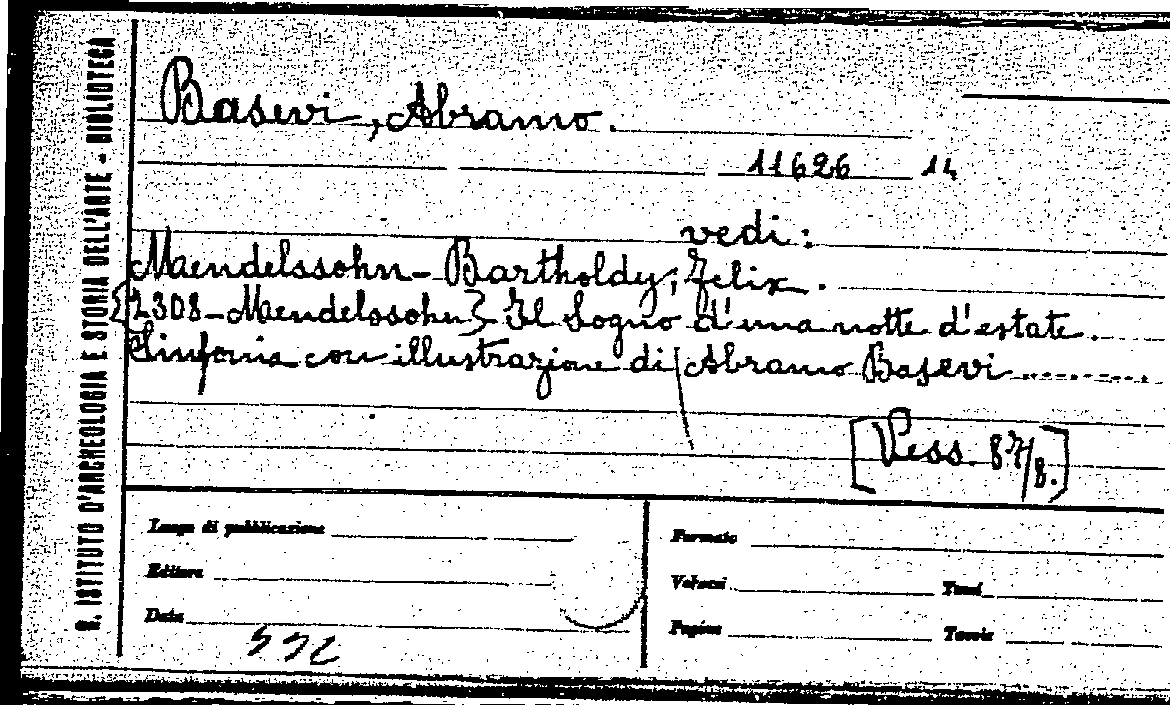 R. ISTITUTO D'ARCHEOLOGIA E STORIA DELL'ARTE - BIBLIOTECA
Basevi, Abramo.
11626 14
vedi:
Mendelssohn-Bartholdy, Felix.
[2308-Mendelssohn] Il Sogno d'una notte d'estate.
Sinfonia con illustrazione di Abramo Basevi
[Vess. 87/8.]
Luogo di pubblicazione
Editore
Data
Formato
Volumi Tomi
Pagine Tavole